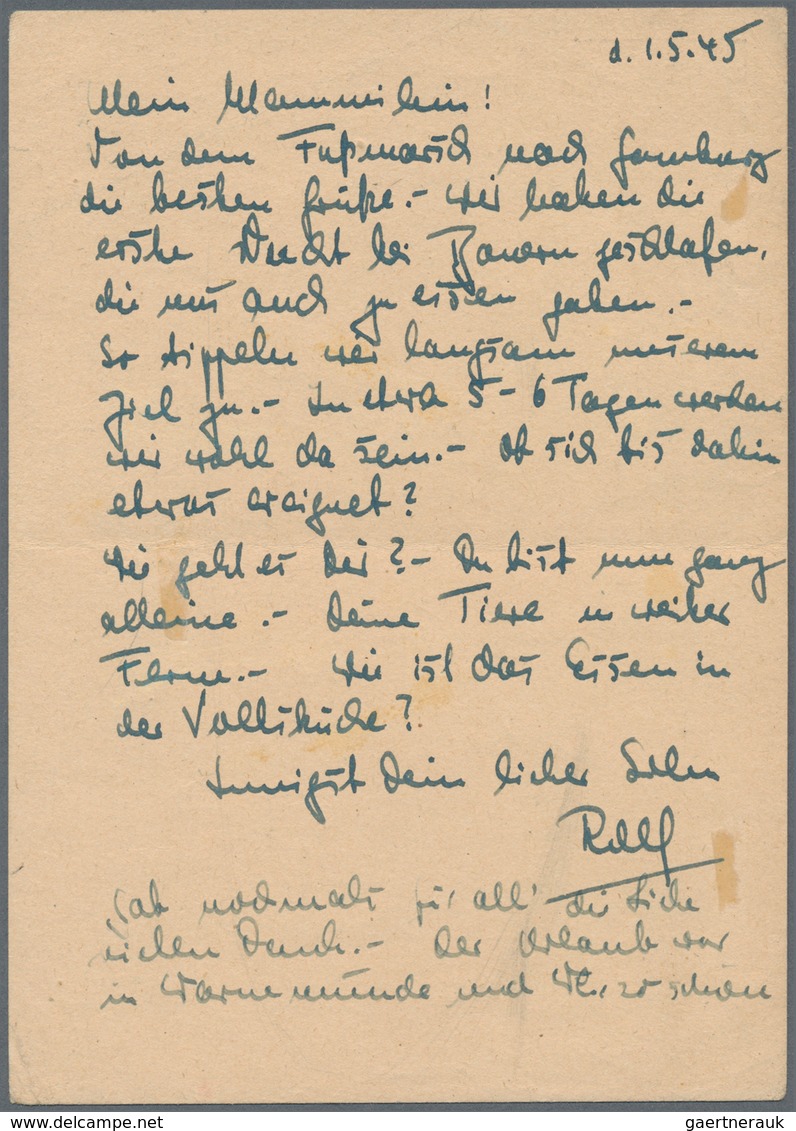 d. 1.5.45
Mein Mammilein!
Von dem Fußmarsch nach Hamburg
die besten Grüße.- Wir haben die
erste Nacht bei Bauern geschlafen,
die uns auch zu essen gaben.-
So tippeln wir langsam unserem
Ziel zu.- In etwa 5-6 Tagen werden
wir wohl da sein.- Ob sich bis dahin
etwas ereignet?
Wie geht es Dir?- Du bist nun ganz
alleine.- Deine Tiere in weiter
Ferne.- Wie ist das Essen in
der Volksküche?
Innigst Dein lieber Sohn
Rolf
Hab nochmals für all' die Liebe
vielen Dank.- Der Urlaub war
in Warnemünde und so schön
delcampe.net
gaertnerauk